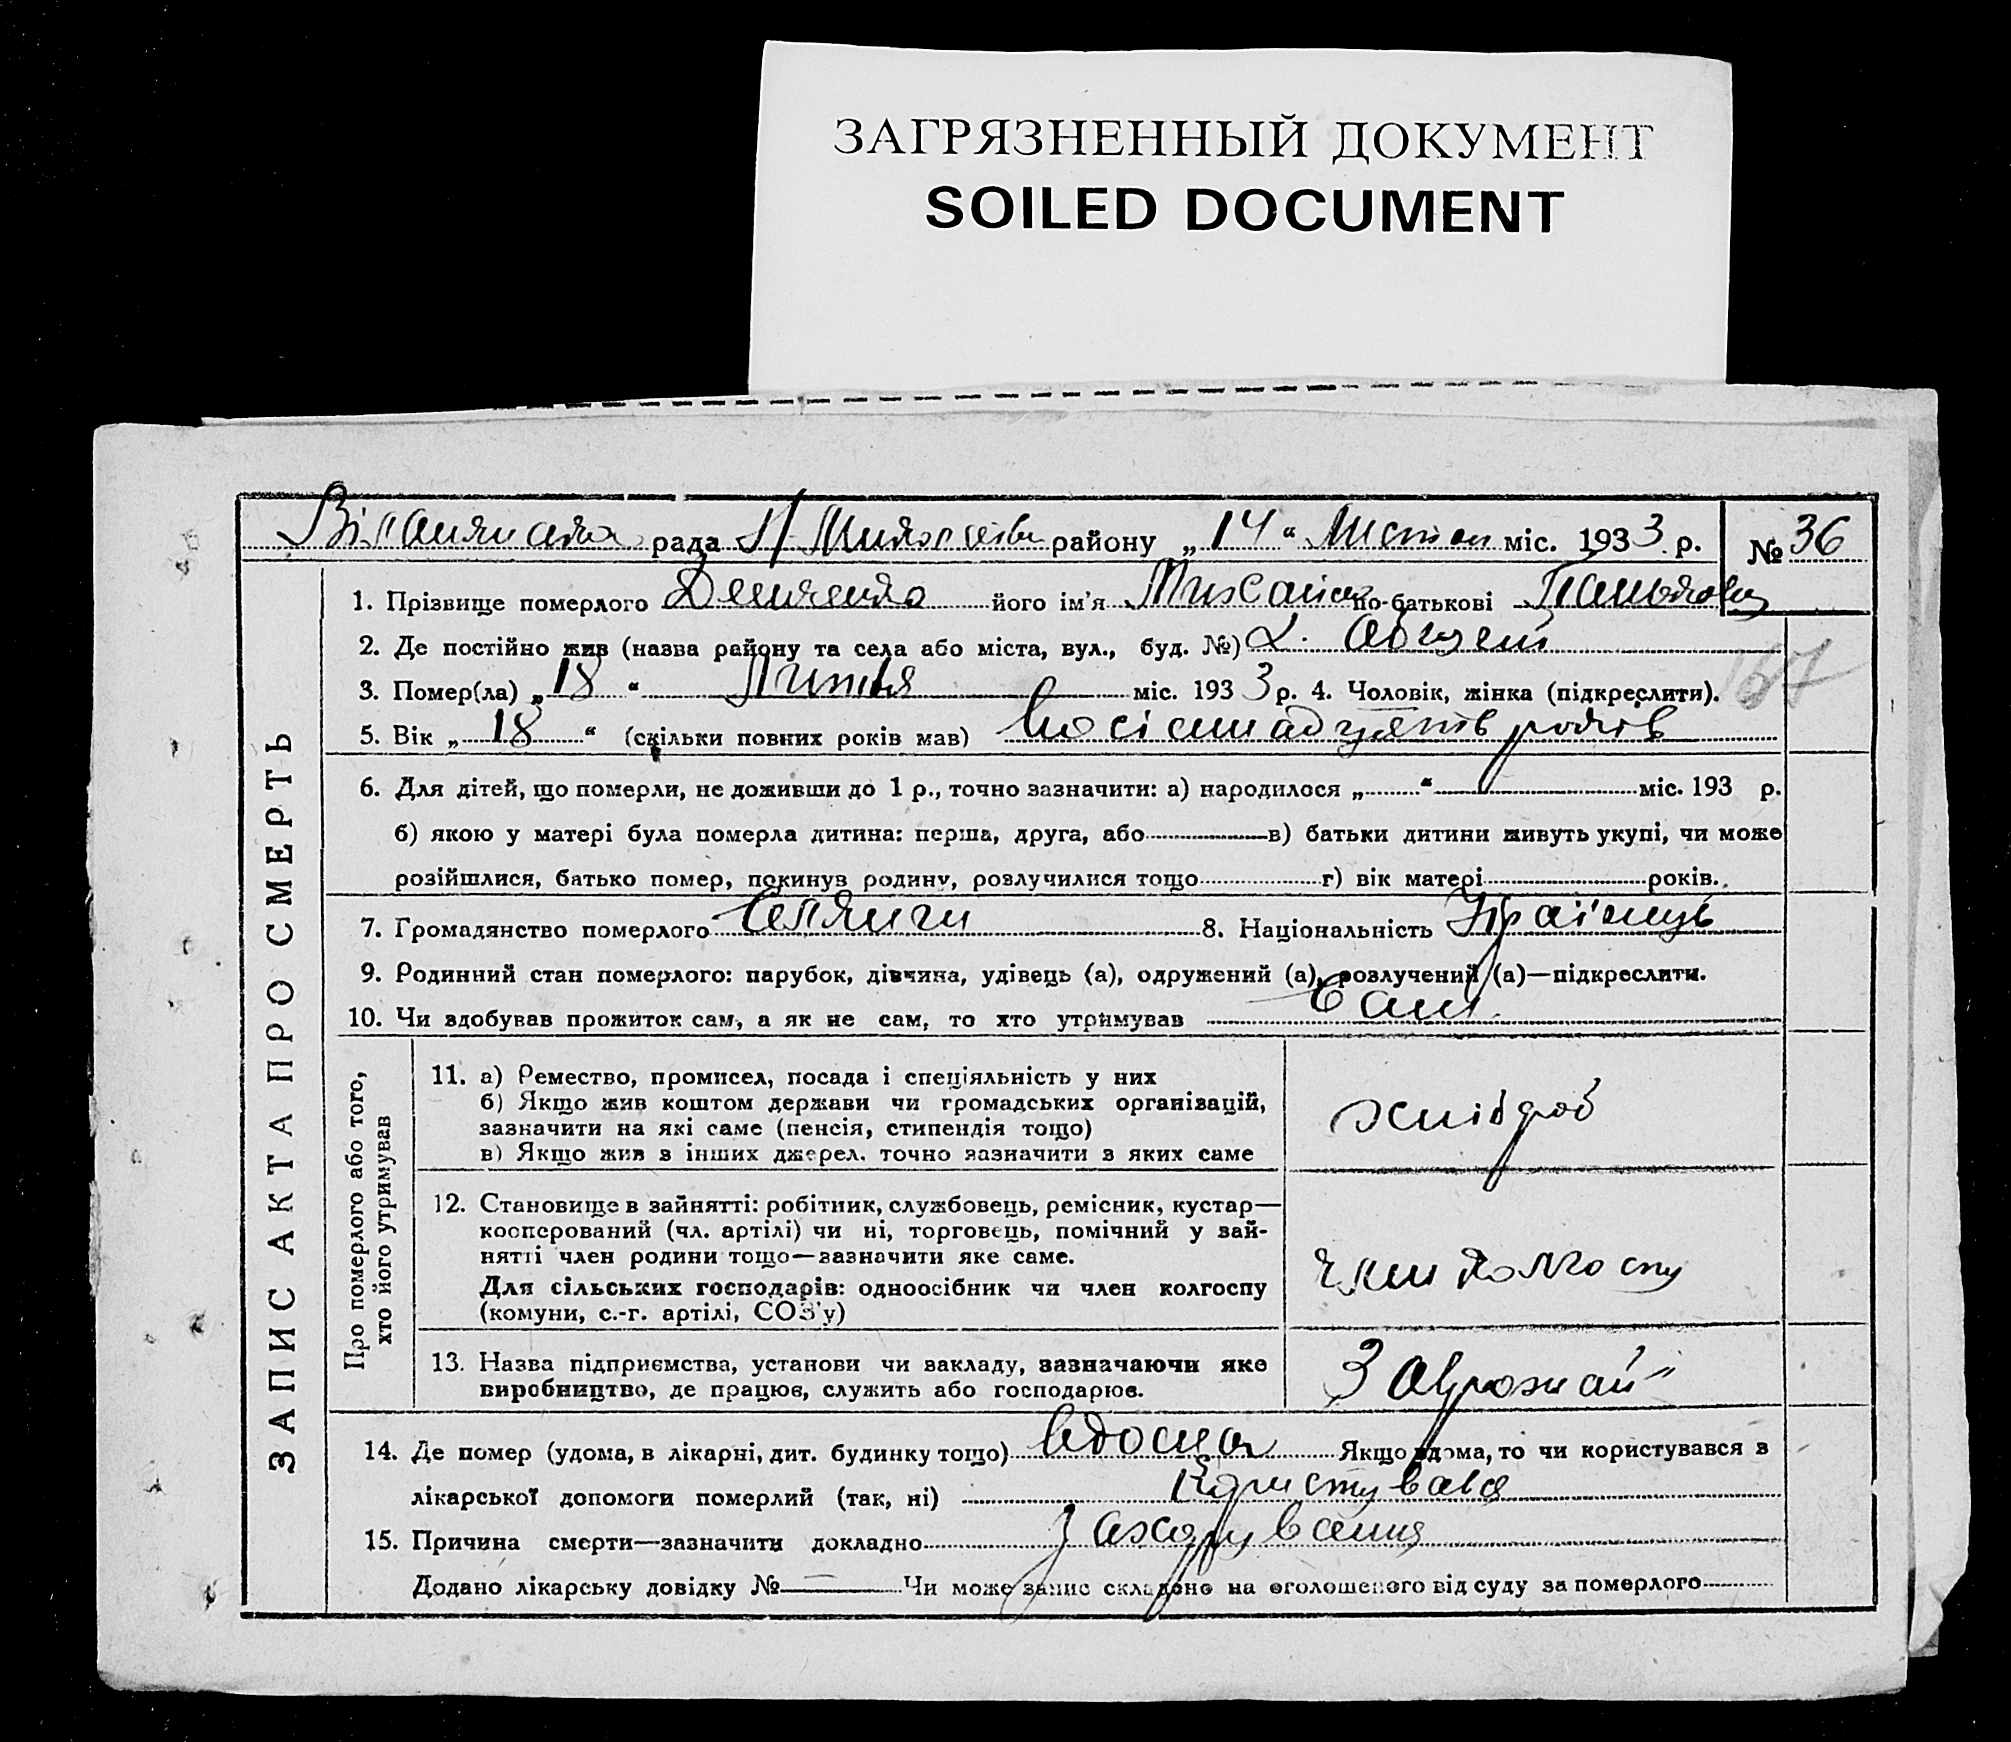 ЗАГРЯЗНЕННЫЙ ДОКУМЕНТ
SOILED DOCUMENT
рада району „14“ міс. 1933 р. № 36
ЗАПИС АКТА ПРО СМЕРТЬ
1. Прізвище померлого його ім'я по-батькові
2. Де постійно жив (назва району та села або міста, вул., буд. №)
167
3. Помер(ла) „18“ міс. 1933 р. 4. Чоловік, жінка (підкреслити).
5. Вік „18“ (скільки повних років мав) Восімнадцять років
6. Для дітей, що померли, не доживши до 1 р., точно зазначити: а) народилося „ “ міс. 193 р.
б) якою у матері була померла дитина: перша, друга, або в) батьки дитини живуть укупі, чи може
розійшлися, батько помер, покинув родину, розлучилися тощо г) вік матері років.
7. Громадянство померлого 8. Національність Українць
9. Родинний стан померлого: парубок, дівчина, удівець (а), одружений (а), розлучений (а)—підкреслити.
10. Чи здобував прожиток сам, а як не сам, то хто утримував Сам
Про померлого або того,
хто його утримував
11. а) Ремество, промисел, посада і спеціяльність у них
б) Якщо жив коштом держави чи громадських організацій,
зазначити на які саме (пенсія, стипендія тощо)
в) Якщо жив з інших джерел. точно зазначити з яких саме
хлібороб
12. Становище в зайнятті: робітник, службовець, ремісник, кустар—
кооперований (чл. артілі) чи ні, торговець, помічний у зай-
нятті член родини тощо—зазначити яке саме.
Для сільських господарів: одноосібник чи член колгоспу
(комуни, с.-г. артілі, СОЗ'у)
член колгоспу
13. Назва підприємства, установи чи закладу, зазначаючи яке
виробництво, де працює, служить або господарює.
За врожай
14. Де помер (удома, в лікарні, дит. будинку тощо) вдома Якщо вдома, то чи користувався з
лікарської допомоги померлий (так, ні) Користувався
15. Причина смерти—зазначити докладно Захорування
Додано лікарську довідку № — Чи може запис складено на оголошеного від суду за померлого